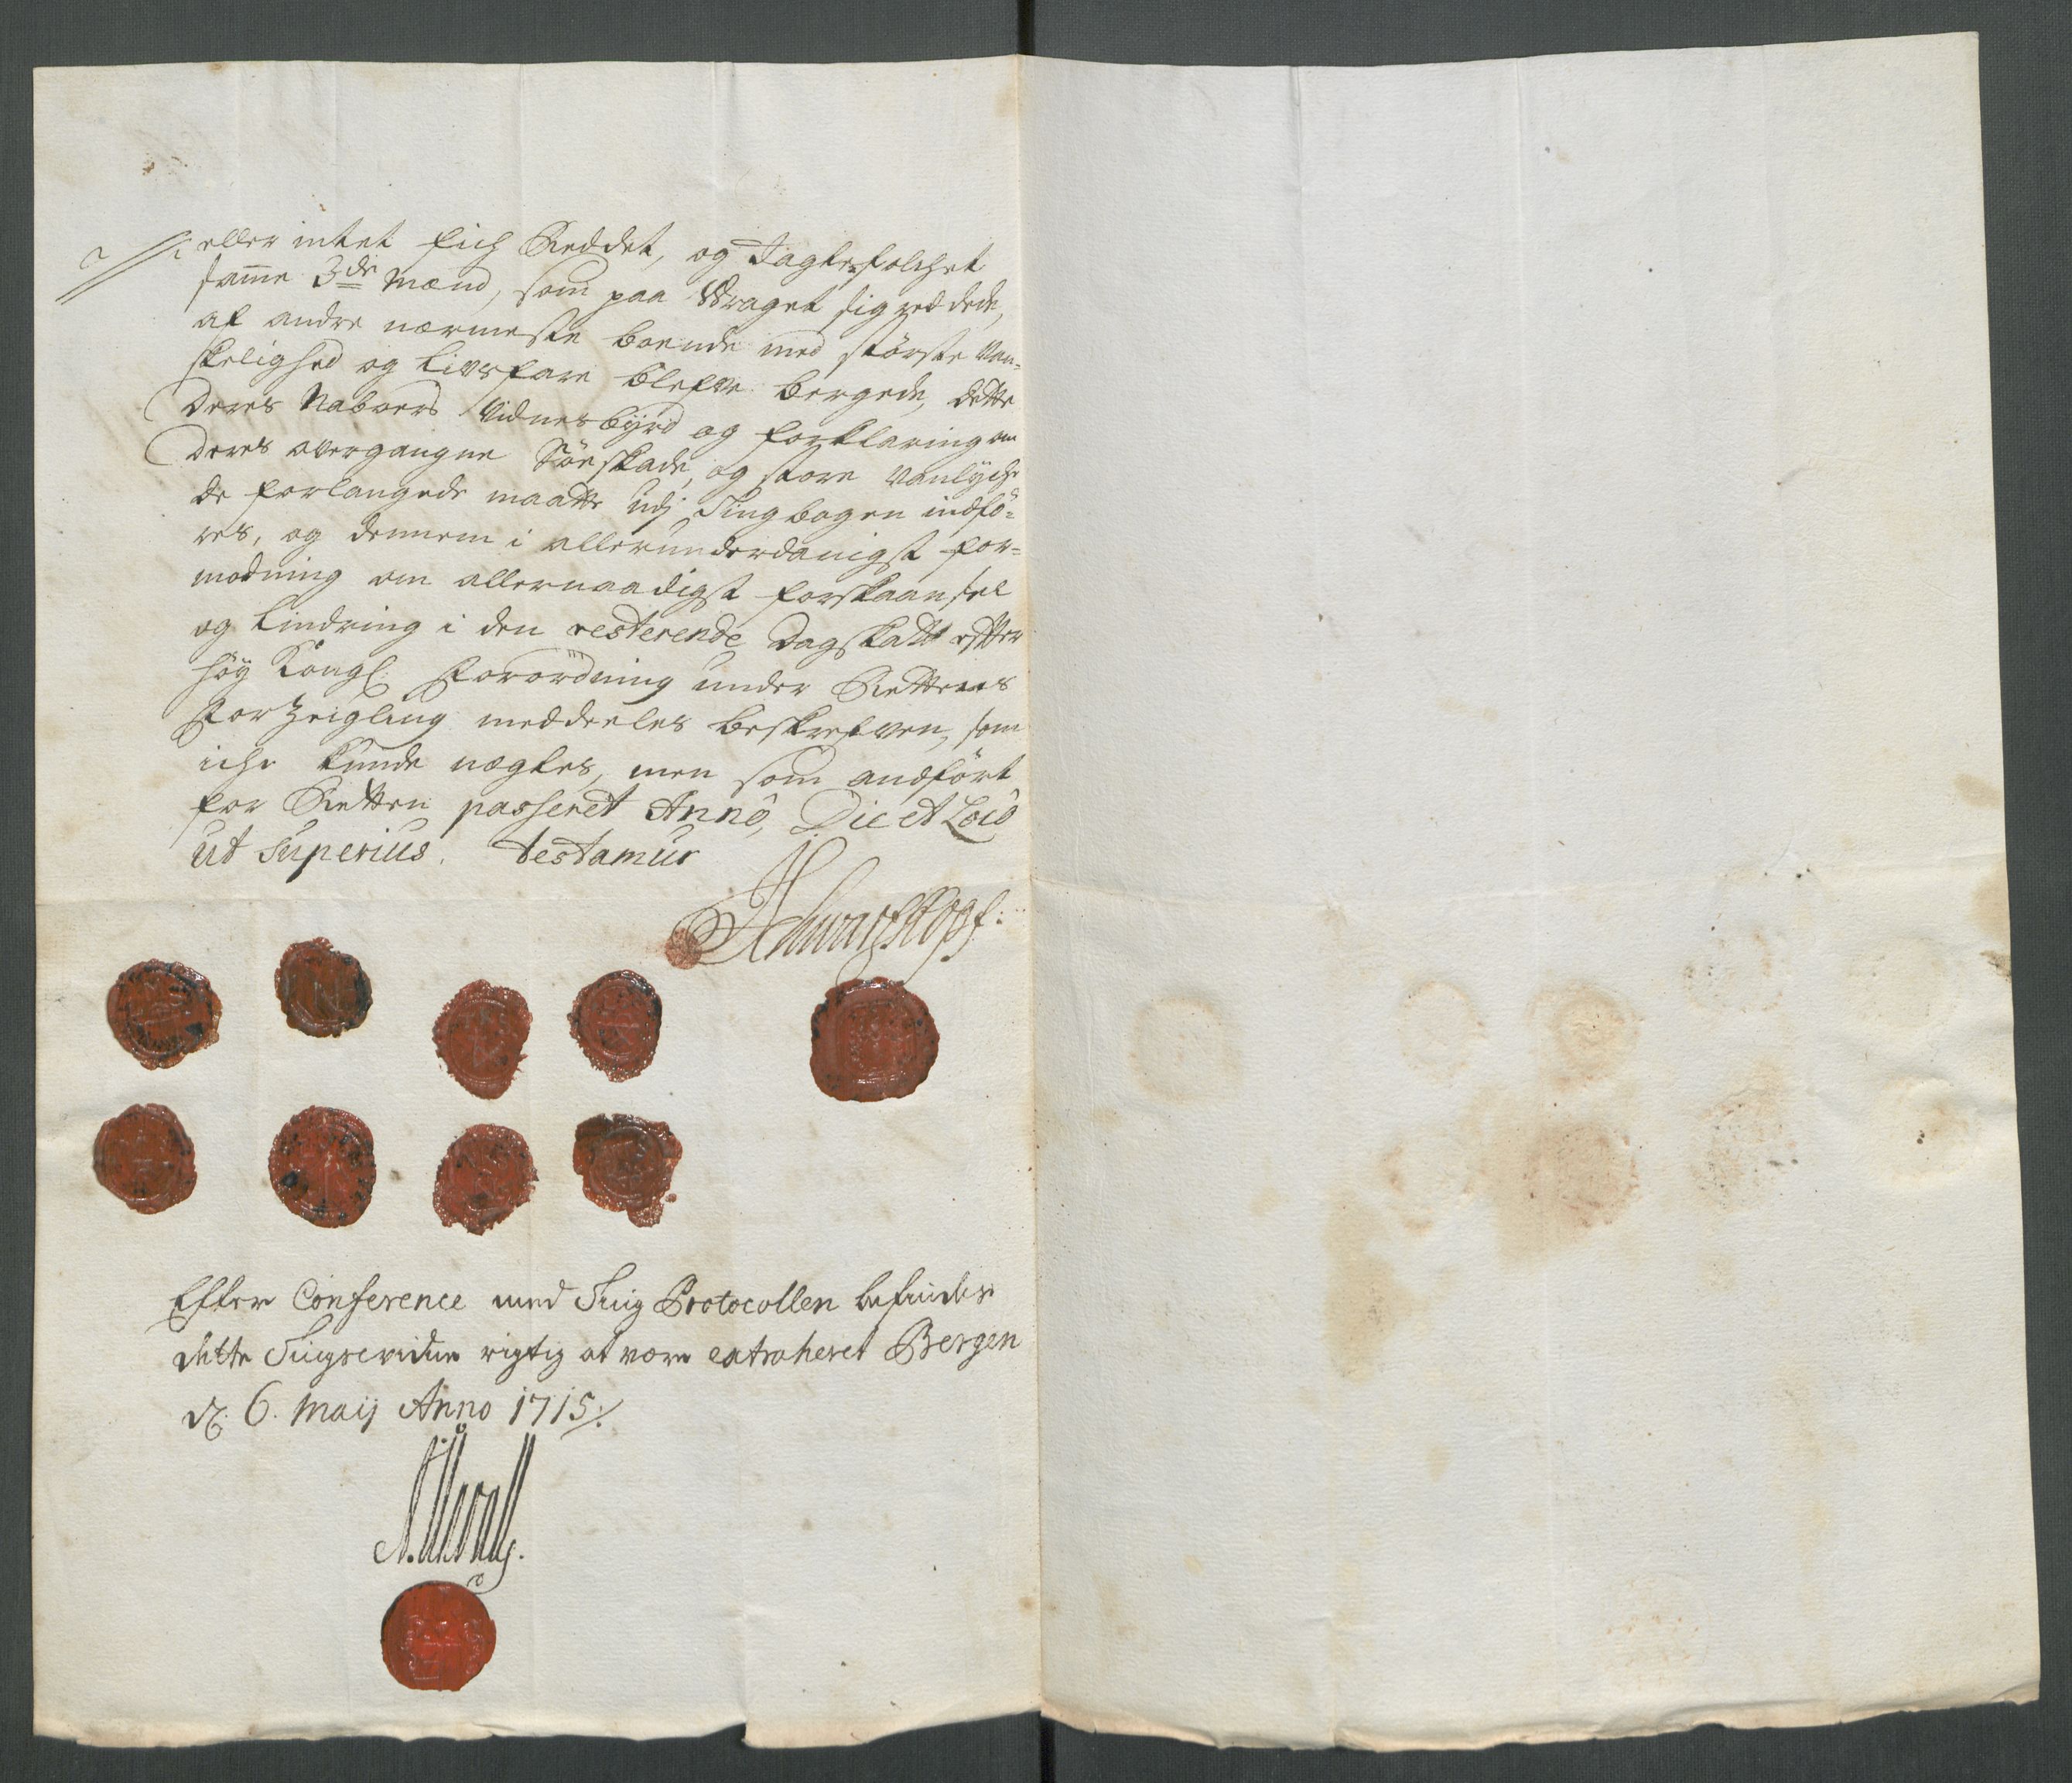 eller intet fich Reddet, og Jagtefolchet
samme 3de Mænd, som paa Wraget sig reddede,
af andre nærmeste boende med störste Van-
skelighed og Livsfare blefve bergede, dette
Deres Naboers Vidnesbyrd og forklaring om
Deres overgangne Söeskade, og store Vanlyche
de forlangede maatte udj Tingbogen indfö-
res, og dennem i allerunderdanigst for-
modning om allernaadigst forskaansel
og Lindring i den resterende Dagskatt efter
höy Kongl. Forordning under Rettens
Forzeigling meddeeles beskrefven, som
iche kunde nægtes, men som andfört
for Retten passeret Anno, Die et Loco
ut Superius. testamur
Efter Conference med Ting Protocollen befindes
dette Tingsvidne rigtig at være extraheret Bergen
d. 6. Maij Anno 1715